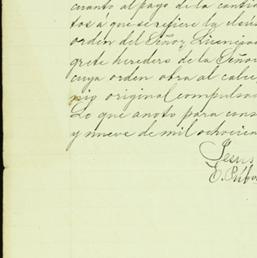 cuanto al pago de la canti
tos á que se refiere la cláus
orden del Señor Licencia
grete heredero de la Señor
cuya orden obra al calce
nio original compulsa
Lo que anoto para cons
y nueve de mil ochocien
Jesus
E. Púb